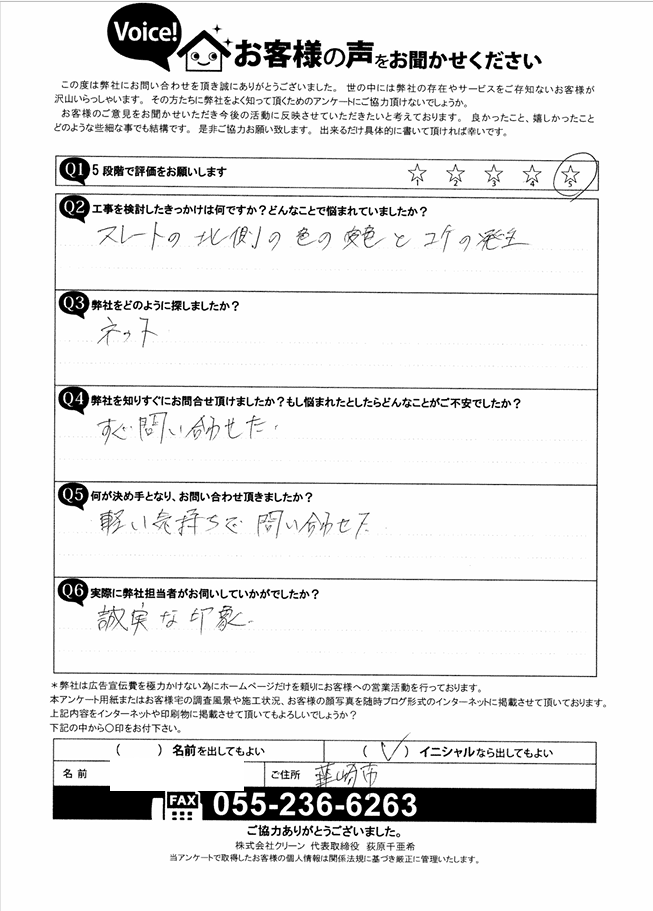 Voice!
お客様の声をお聞かせください
この度は弊社にお問い合わせを頂き誠にありがとうございました。 世の中には弊社の存在やサービスをご存知ないお客様が
沢山いらっしゃいます。 その方たちに弊社をよく知って頂くためのアンケートにご協力頂けないでしょうか。
お客様のご意見をお聞かせいただき今後の活動に反映させていただきたいと考えております。 良かったこと、嬉しかったこと
どのような些細な事でも結構です。 是非ご協力お願い致します。 出来るだけ具体的に書いて頂ければ幸いです。
Q1 5段階で評価をお願いします
1 2 3 4 5
Q2 工事を検討したきっかけは何ですか?どんなことで悩まれていましたか?
スレートの北側の色の変色とコケの発生
Q3 弊社をどのように探しましたか?
ネット
Q4 弊社を知りすぐにお問合せ頂けましたか?もし悩まれたとしたらどんなことがご不安でしたか?
すぐ問い合わせた.
Q5 何が決め手となり、お問い合わせ頂きましたか?
軽い気持ちで問い合わせた
Q6 実際に弊社担当者がお伺いしていかがでしたか?
誠実な印象.
*弊社は広告宣伝費を極力かけない為にホームページだけを頼りにお客様への営業活動を行っております。
本アンケート用紙またはお客様宅の調査風景や施工状況、お客様の顔写真を随時ブログ形式のインターネットに掲載させて頂いております。
上記内容をインターネットや印刷物に掲載させて頂いてもよろしいでしょうか?
下記の中から○印をお付下さい。
( ) 名前を出してもよい
(✓) イニシャルなら出してもよい
名前
ご住所 韮崎市
FAX 055-236-6263
ご協力ありがとうございました。
株式会社クリーン 代表取締役 荻原千亜希
当アンケートで取得したお客様の個人情報は関係法規に基づき厳正に管理いたします。